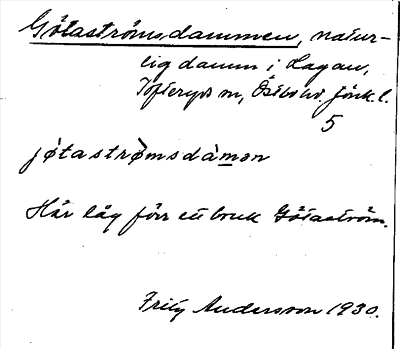 Götaströmsdammen, natur-
lig damm i Lagan,
Tofteryds sn, Östbo hd. Jönk. l.
5
jøtastrømsdàmən
Här låg förr ett bruk Götaström.
Fritz Andersson 1930.